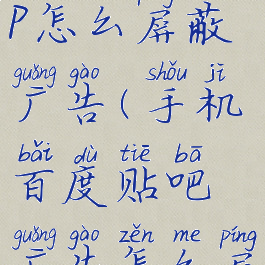 P怎么屏蔽
guǎng gào shǒu jī
广告(手机
bǎi dù tiē bā
百度贴吧
guǎng gào zěn me píng
广告怎么屏